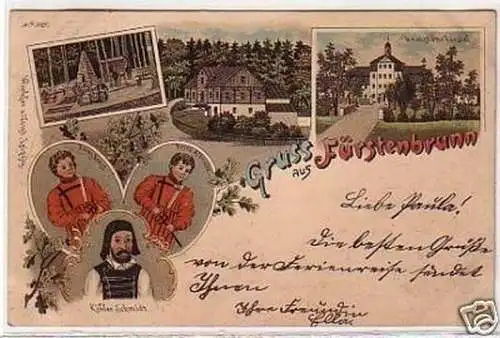 Gruss
aus
Fürstenbrunn
Köhler Schmidt
Liebe Paula!
Die besten Grüße
von der Ferienreise sendet
Ihnen
Ihre Freundin
Ella.
ebY